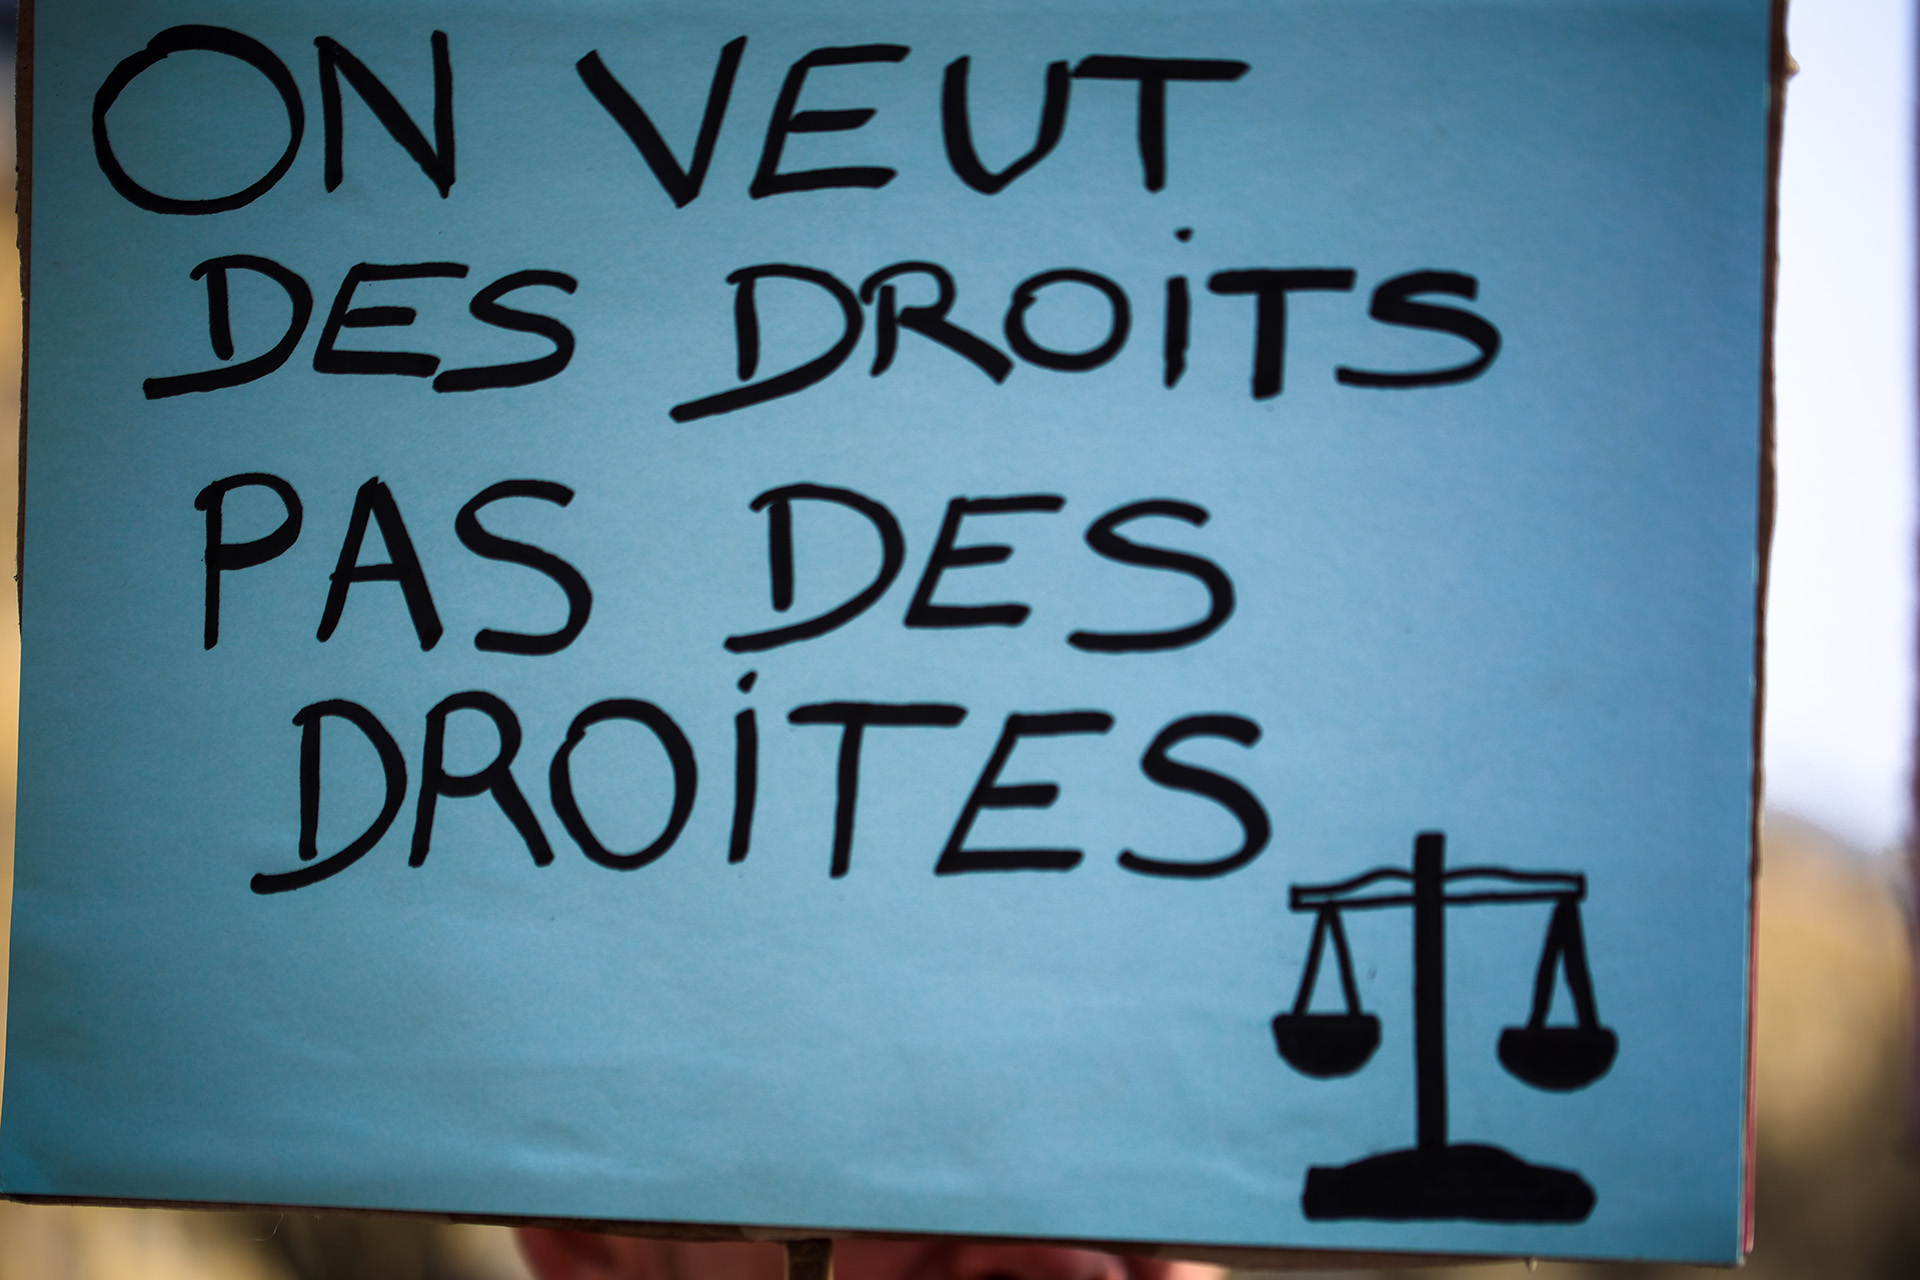 ON VEUT
DES DROiTS
PAS DES
DROiTES